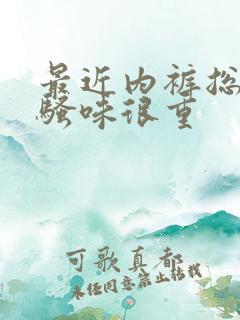 最近内裤总
骚味很重
可歌真都
未经同意禁止转载